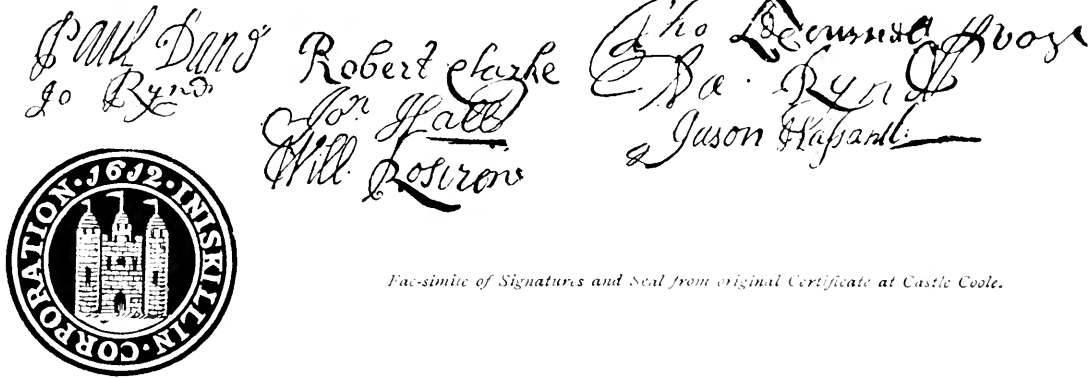 Paul Dane
Jo Rynd
Robert Clarke
Jon Hall
Will Rosgrove
Tho Provost
Da. Rynd
Jason Hassard
CORPORATION · 1612 · INISKILLIN ·
Fac-simile of Signatures and Seal from original Certificate at Castle Coole.